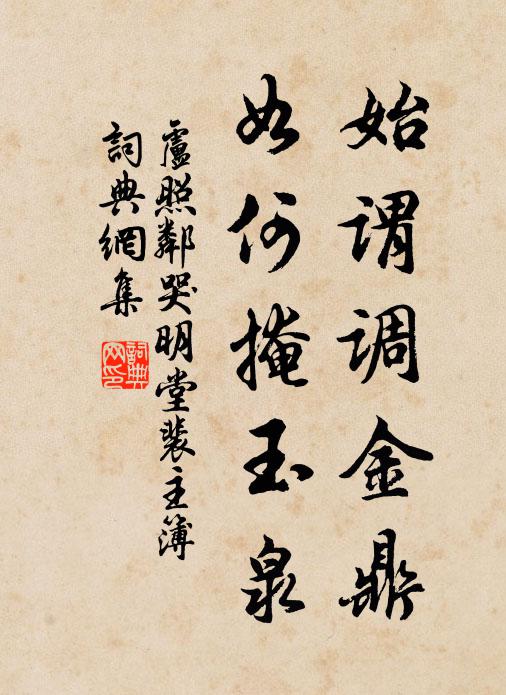 始谓调金鼎
如何掩玉泉
盧照鄰哭明堂裴主簿
詞典網集
詞典网印